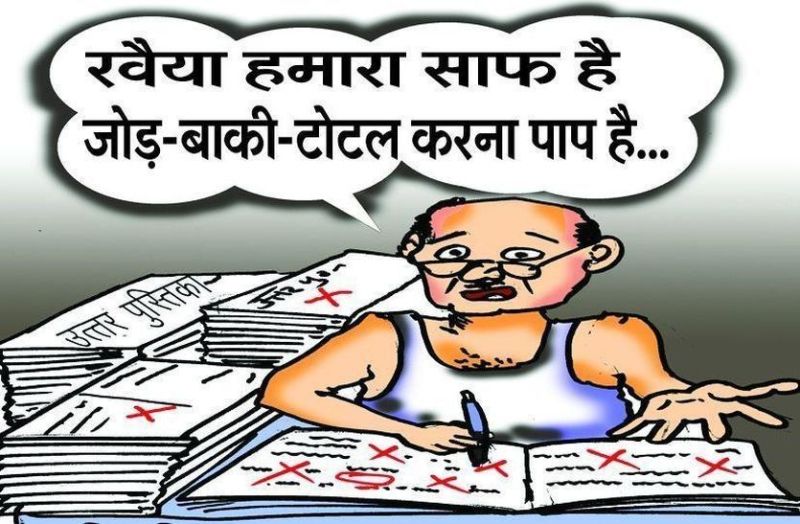 रवैया हमारा साफ है
जोड़-बाकी-टोटल करना पाप है...
उत्तर पुस्तिका
उत्तर पु०-